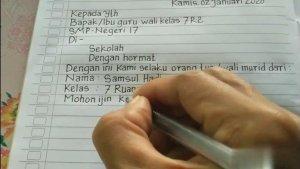 Kamis, 02 Januari 2020
Kepada Yth
Bapak/Ibu guru wali kelas 7R2
SMP-Negeri 17
Di-
Sekolah
Dengan hormat
Dengan ini kami selaku orang tua/wali murid dari:
Nama : Samsul
Kelas : 7 Ruan
Mohon ijin